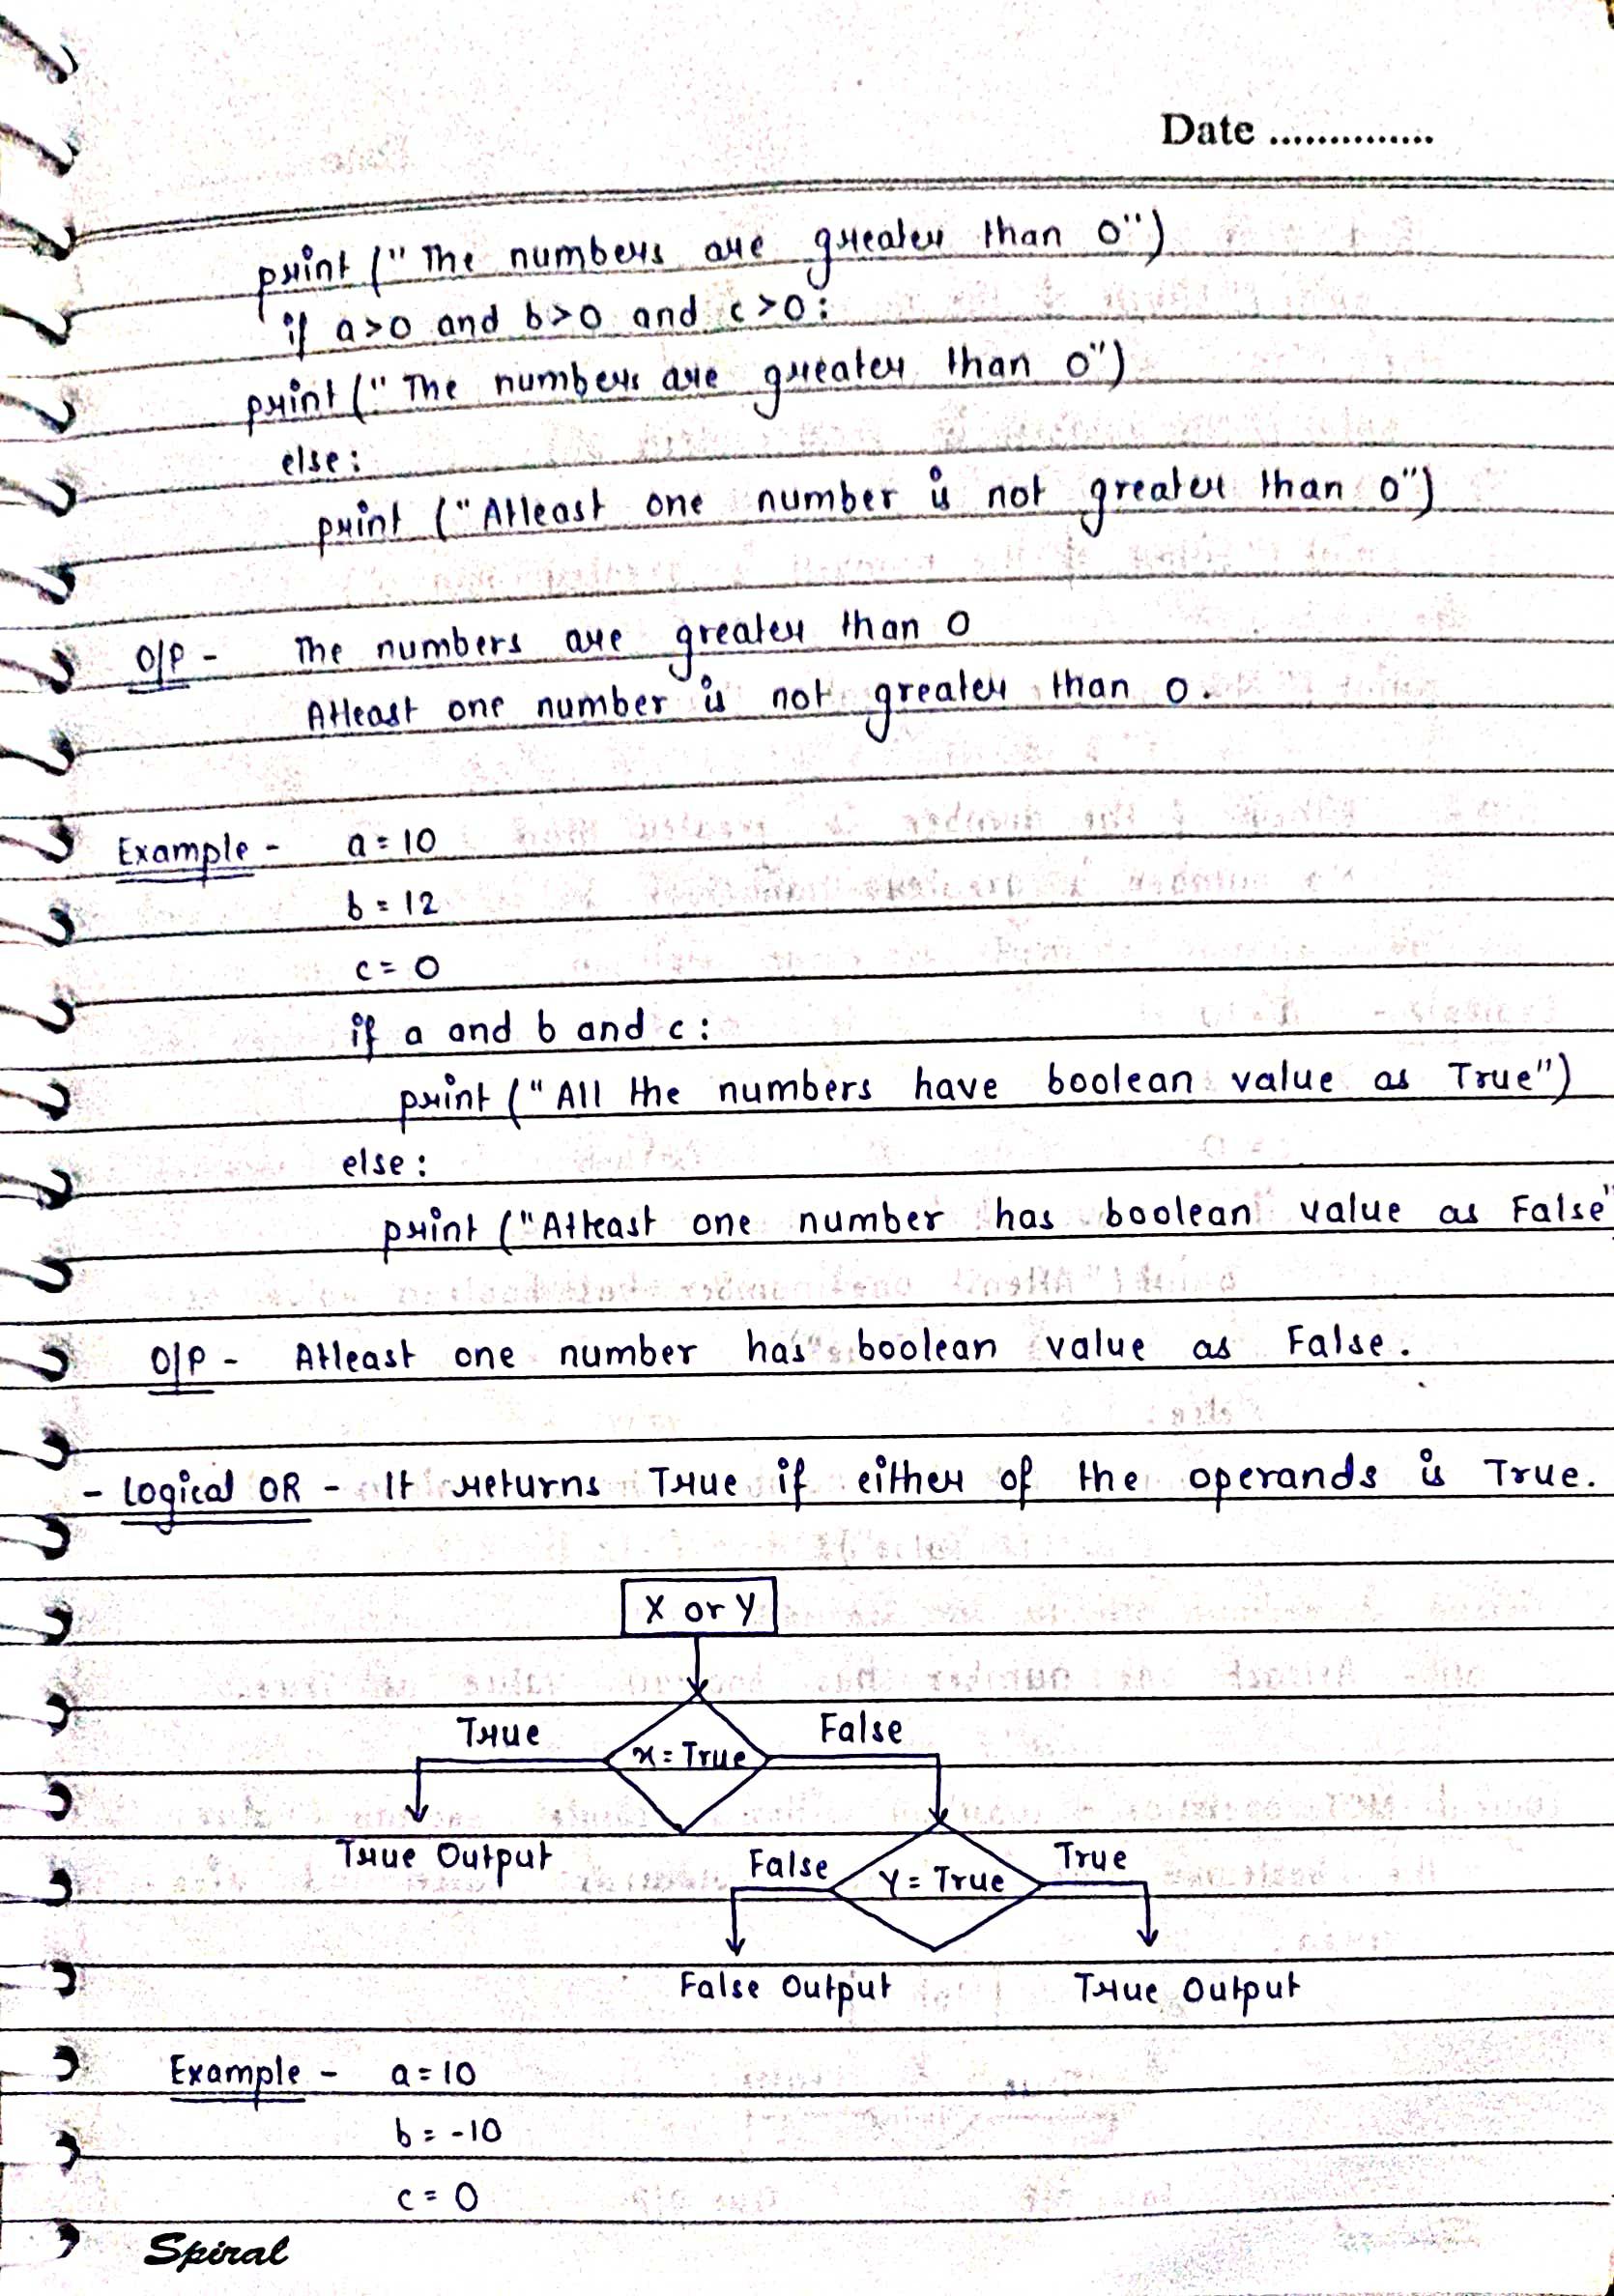 Date ..............
print ("The numbers are greater than 0")
if a>0 and b>0 and c>0:
print ("The numbers are greater than 0")
else:
print ("Atleast one number is not greater than 0")
O/P - The numbers are greater than 0
Atleast one number is not greater than 0.
Example - a = 10
b = 12
c = 0
if a and b and c:
print ("All the numbers have boolean value as True")
else:
print ("Atleast one number has boolean value as False"
O/P - Atleast one number has boolean value as False.
- Logical OR - It returns True if either of the operands is True.
X or Y
True x = True False
True Output
False Y = True True
False Output True Output
Example - a = 10
b = -10
c = 0
Spiral